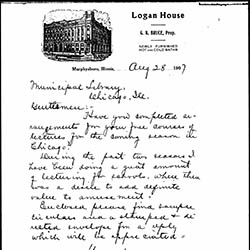 Logan House
G. R. BRUCE, Prop.
NEWLY FURNISHED
HOT AND COLD BATHS
Murphysboro, Illinois, Aug 28 1907
Municipal Library,
Chicago, Ill.
Gentlemen:-
Have you completed ar-
rangements for your free courses of
lectures for the coming season in
Chicago?
During the past two seasons I
have been doing a great amount
of lecturing for schools, where there
was a desire to add definite
value to amusement.
Enclosed please find sample
circulars and a stamped & di-
rected envelope for a reply
which will be appreciated.